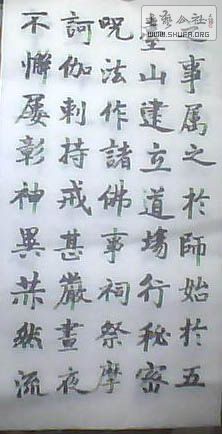 之事属之於師始於五
臺山建立道場行秘密
呪法作諸佛事祠祭摩
訶伽剌持戒甚嚴晝夜
不懈屡彰神異赫然流
公社
WWW.SHUFA.ORG